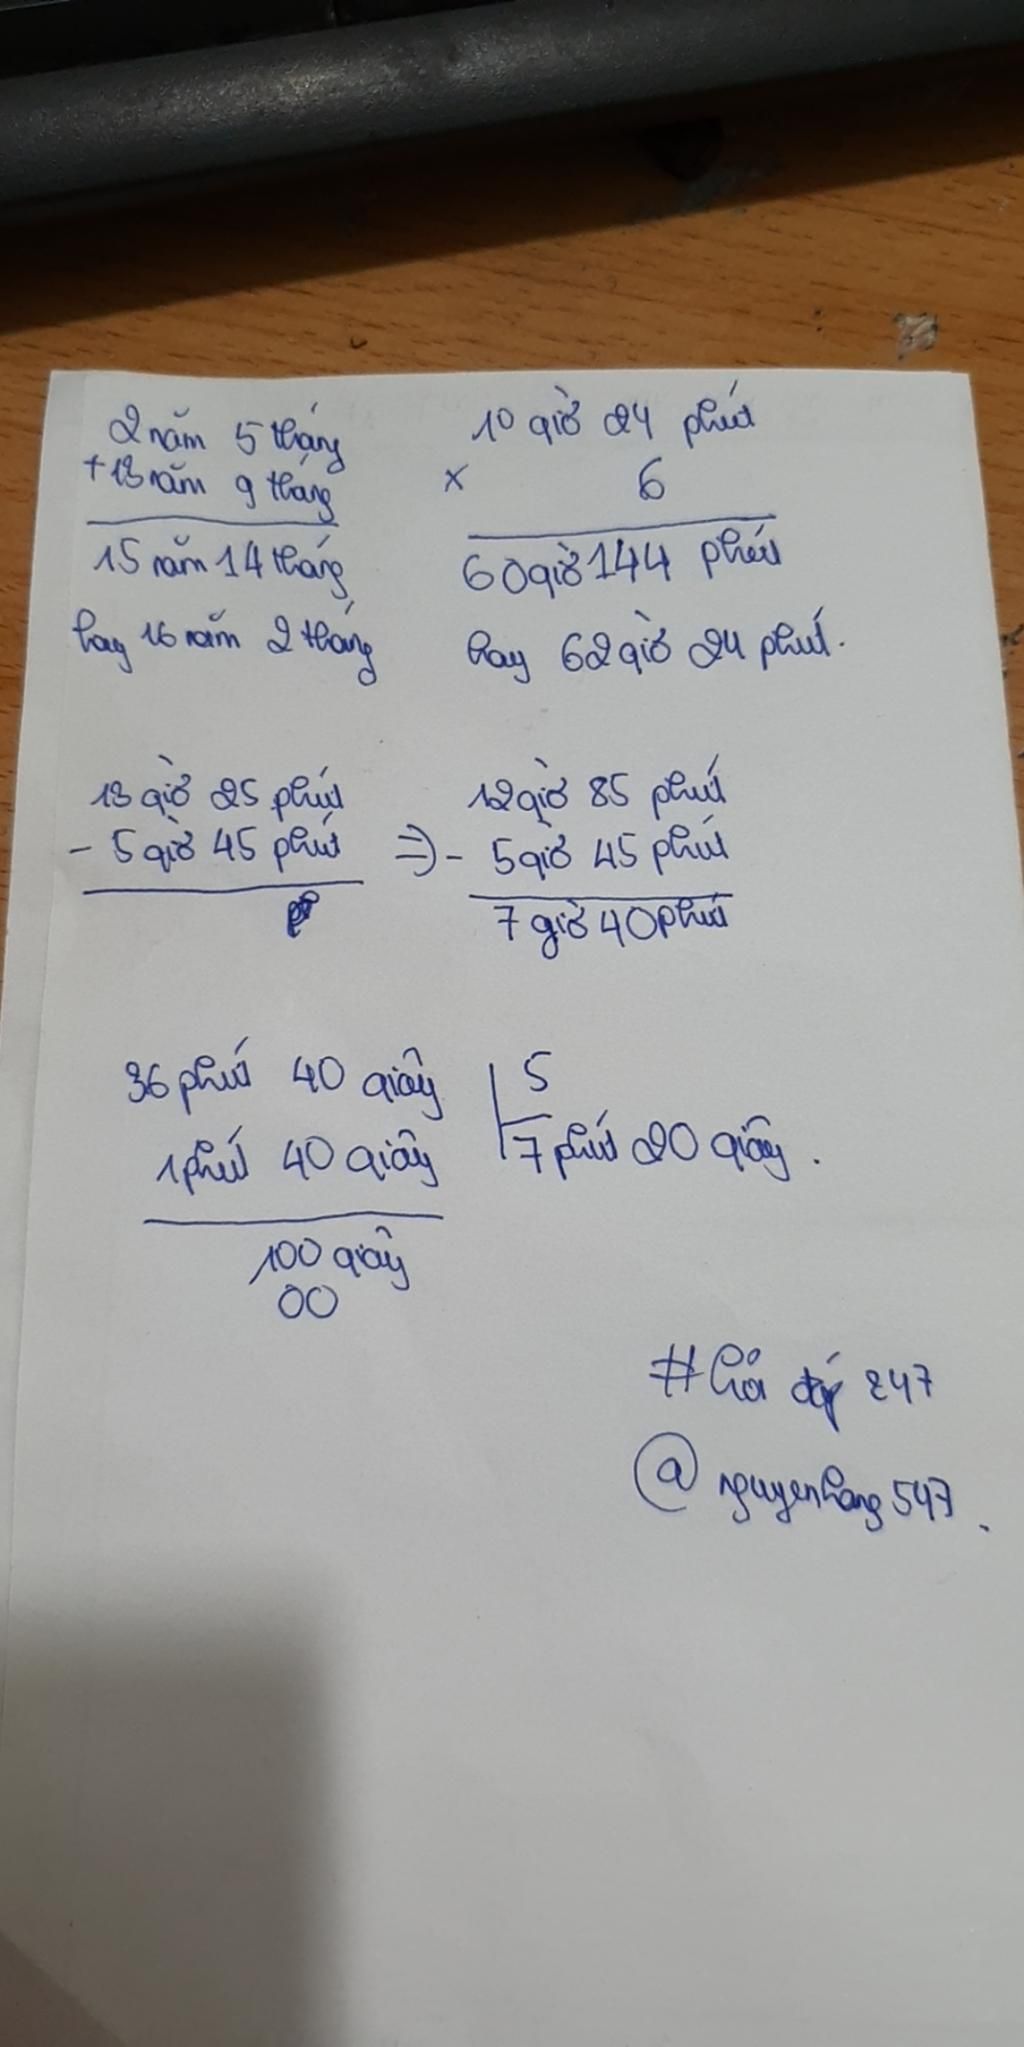 2 năm 5 tháng
+ 13 năm 9 tháng
15 năm 14 tháng
hay 16 năm 2 tháng
10 giờ 24 phút
x 6
60 giờ 144 phút
hay 62 giờ 24 phút.
13 giờ 25 phút
- 5 giờ 45 phút
⇒
12 giờ 85 phút
- 5 giờ 45 phút
7 giờ 40 phút
36 phút 40 giây | 5
1 phút 40 giây 7 phút 20 giây.
100 giây
00
# hỏi đáp 247
@nguyenhang547.